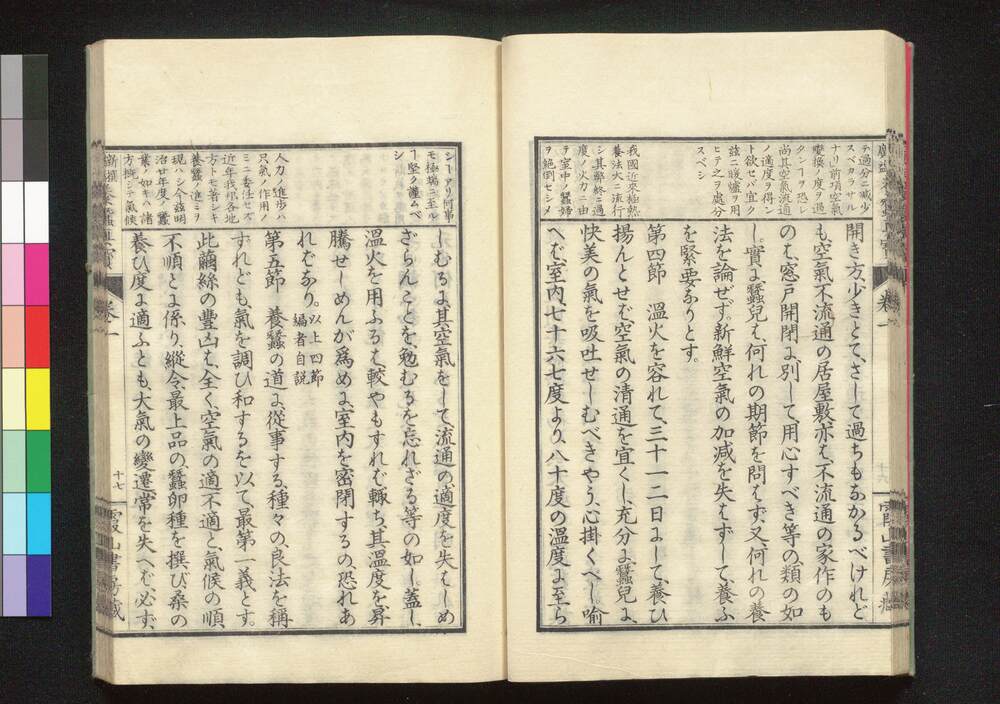 テ過分ニ減少
スベカラザル
ナリ前項空氣
變換ノ度ヲ過
タンヿヲ恐レ
尚其空氣流通
ノ適度ヲ得ン
ト欲セバ宜ク
玆ニ暖爐ヲ用
ヒテ之ヲ處分
スベシ
我國近來極熱
養法大ニ流行
シ其弊終ニ過
度ノ火力ニ由
ヲ室中ノ蠶婦
ヲ絶倒セシメ
開き方、少きとて、さして過ちもなかるべけれど
も、空氣不流通の居屋敷、亦は、不流通の家作のも
のは、窓戸開閉に、別して、用心すべき等の、類の如
し。實に、蠶兒は、何れの期節を問はず、又、何れの養
法を論ぜず。新鮮空氣の加減を失はずして、養ふ
を緊要なりとす。
第四節 温火を容れて、三十一二日にして、養ひ
揚んとせば、空氣の清通を宜くし、充分に、蠶兒に、
快美の氣を吸吐せしむべきやう、心掛くべし。喩
へば、室内、七十六七度より、八十度の温度に至ら
卷一
十六
シヿアリ何事
モ極端ニ至ル
ヿ堅ク謹ムベ
シ
人力ノ進歩ハ
只氣ノ作用ノ
ミニ委任セズ
近年我邦各地
方トモ著シキ
養蠶ノ進ミヲ
現ハシ今玆明
治廿年度ノ蠶
業ノ如キハ諸
方概シテ氣候
しむるに、其空氣をして、流通の適度を失はしめ
ざらんことを、勉むるを忘れざる等の如し。蓋し、
温火を用ふるは、較やもすれば、輙ち、其温度を昇
騰せしめんが爲めに、室内を密閉するの、恐れあ
ればなり。以上四節
編者自説
第五節 養蠶の道に從事する、種々の、良法を稱
すれども、氣を調ひ和するを以て、最第一義とす。
此繭絲の豐凶は、全く、空氣の適不適と、氣候の順、
不順とに係り、縱令、最上品の、蠶卵種を撰び、桑の
養ひ度に適ふとも、大氣の變遷、常を失へば、必ず、
卷一
十七
霞山書房藏